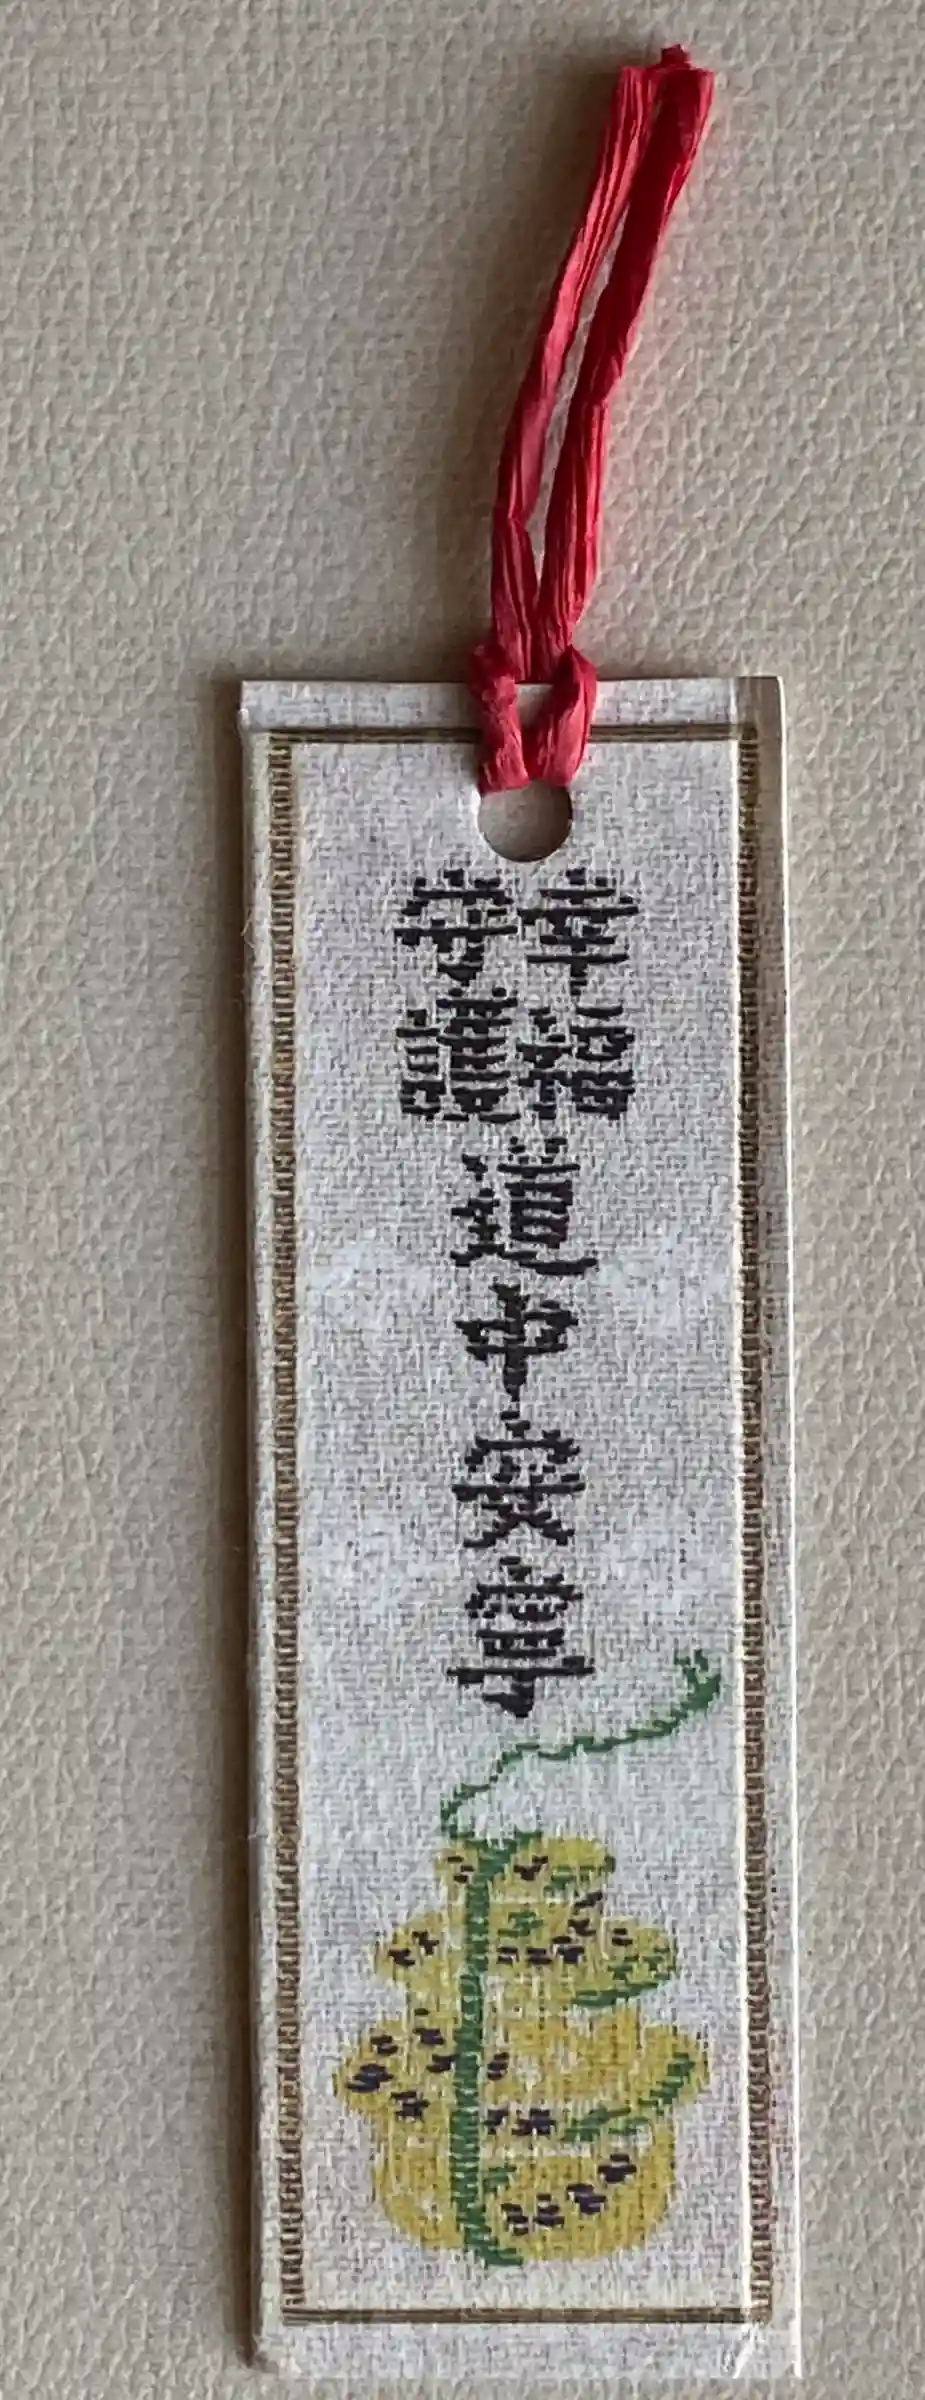 幸福
守護
道中安寧